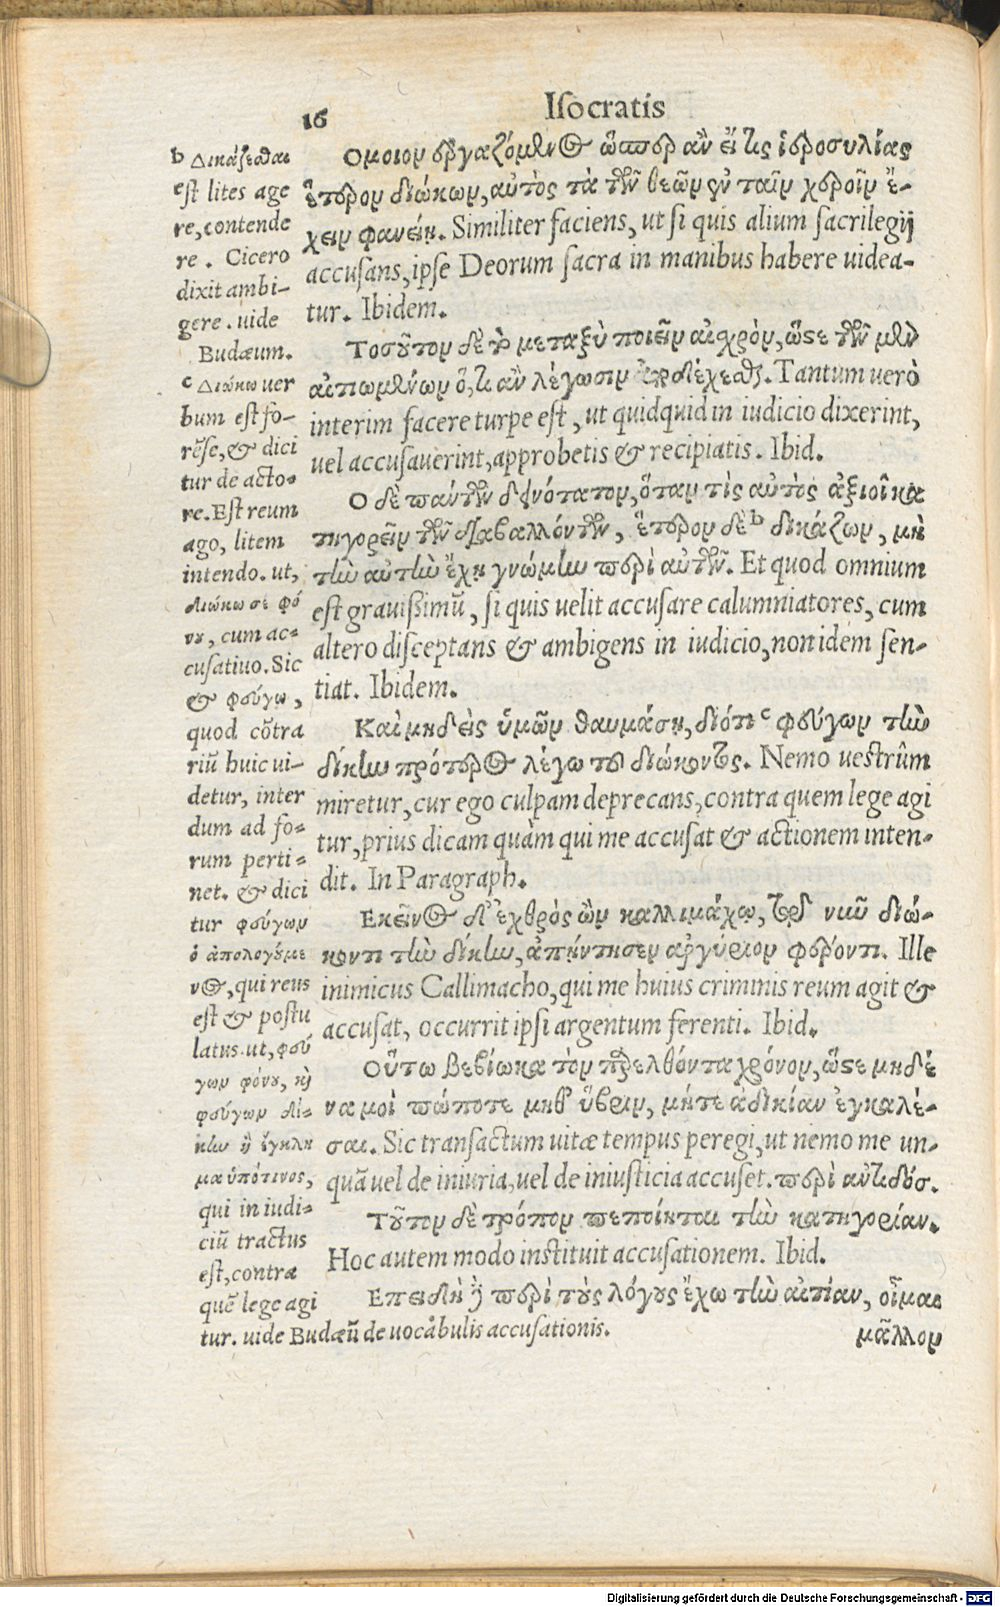 16
Isocratis
Ομοιον ἐργαζόμενος ὥσπερ ἂν εἴ τις ἱεροσυλίας
ἕτερον διώκων, αὐτὸς τὰ τῶν θεῶν ἐν ταῖν χεροῖν ἔ-
χειν φανείη. Similiter faciens, ut si quis alium sacrilegij
accusans, ipse Deorum sacra in manibus habere uidea-
tur. Ibidem.
Τοσοῦτον δὲ τὸ μεταξὺ ποιεῖν αἰσχρὸν, ὥστε τῶν μὲν
αἰτιωμένων ὅ,τι ἂν λέγωσιν ἀποδέχεσθαι. Tantum uerò
interim facere turpe est, ut quidquid in iudicio dixerint,
uel accusauerint, approbetis & recipiatis. Ibid.
Ο δὲ πάντων δεινότατον, ὅταν τὶς αὐτὸς ἀξιοῖ κα
τηγορεῖν τῶν διαβαλλόντων, ἕτερον δὲ b δικάζων, μὴ
τὴν αὐτὴν ἔχῃ γνώμην περὶ αὐτῶν. Et quod omnium
est grauissimũ, si quis uelit accusare calumniatores, cum
altero disceptans & ambigens in iudicio, non idem sen-
tiat. Ibidem.
Καὶ μηδεὶς ὑμῶν θαυμάσῃ, διότι c φεύγων τὴν
δίκην πρότερος λέγω τοῦ διώκοντος. Nemo uestrûm
miretur, cur ego culpam deprecans, contra quem lege agi
tur, prius dicam quàm qui me accusat & actionem inten-
dit. In Paragraph.
Εκεῖνος δ' ἐχθρὸς ὢν καλλιμάχῳ, τῷ νῦν διώ-
κοντι τὴν δίκην, ἀπήντησεν ἀργύριον φέροντι. Ille
inimicus Callimacho, qui me huius criminis reum agit &
accusat, occurrit ipsi argentum ferenti. Ibid.
Οὕτω βεβίωκα τὸν παρελθόντα χρόνον, ὥστε μηδέ
να μοὶ πώποτε μηθ' ὕβριν, μήτε ἀδικίαν ἐγκαλέ-
σαι. Sic transactum uitæ tempus peregi, ut nemo me un-
quã uel de iniuria, uel de iniusticia accuset. περὶ ἀντιδόσ.
Τοῦτον δὲ τρόπον πεποίηται τὴν κατηγορίαν.
Hoc autem modo instituit accusationem. Ibid.
Επειδὴ γὰρ περὶ τοὺς λόγους ἔχω τὴν αἰτίαν, οἶμαι
μᾶλλον
b Δικάζεσθαι
est lites age
re, contende
re. Cicero
dixit ambi-
gere. uide
Budæum.
c Διώκω uer
bum est fo-
rẽse, & dici
tur de acto-
re. Est reum
ago, litem
intendo. ut,
διώκω σε φό
νου, cum ac-
cusatiuo. Sic
& φεύγω,
quod cõtra
riũ huic ui-
detur, inter
dum ad fo-
rum perti-
net. & dici
tur φεύγων
ὁ ἀπολογούμε
νος, qui reus
est & postu
latus. ut, φεύ
γων φόνου, καὶ
φεύγων δί-
κην ἢ ἔγκλη
μα ὑπότινος,
qui in iudi-
ciũ tractus
est, contra
quẽ lege agi
tur. uide Budæũ de uocabulis accusationis.
Digitalisierung gefördert durch die Deutsche Forschungsgemeinschaft - DFG